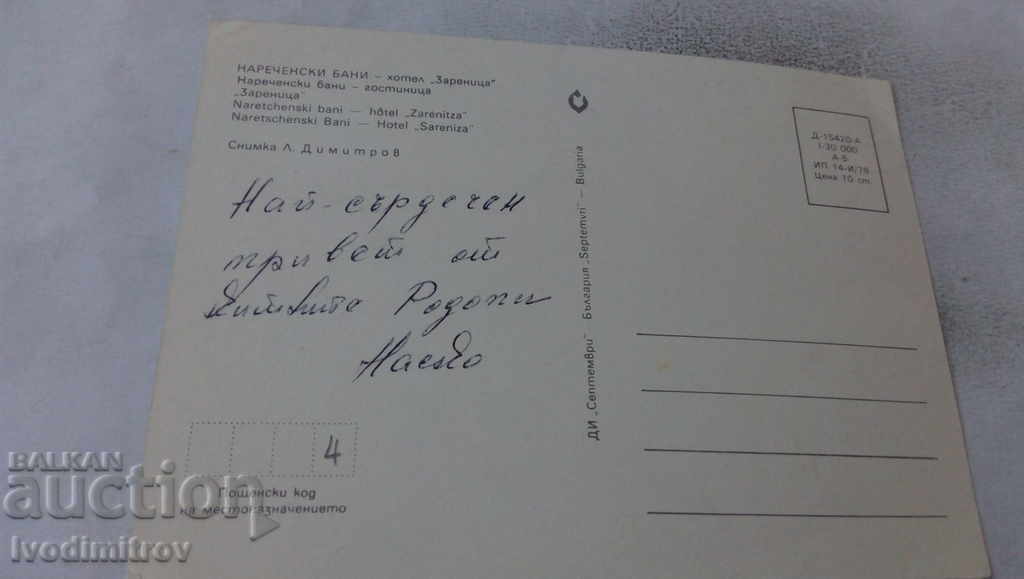 НАРЕЧЕНСКИ БАНИ – хотел „Зареница"
Нареченски бани – гостиница
„Зареница"
Naretchenski bani — hôtel „Zarenitza"
Naretschenski Bani — Hotel „Sareniza"
Снимка Л. Димитров
Най-сърдечен
привет от
Родопи
Наско
4
Пощенски код
на местоназначението
ДИ „Септември" България „Septemvri" — Bulgaria
Д-15420-А
1-30 000
А-Б
ИП 14-И/78
Цена 10 ст.
BALKAN
auction
Ivodimitrov